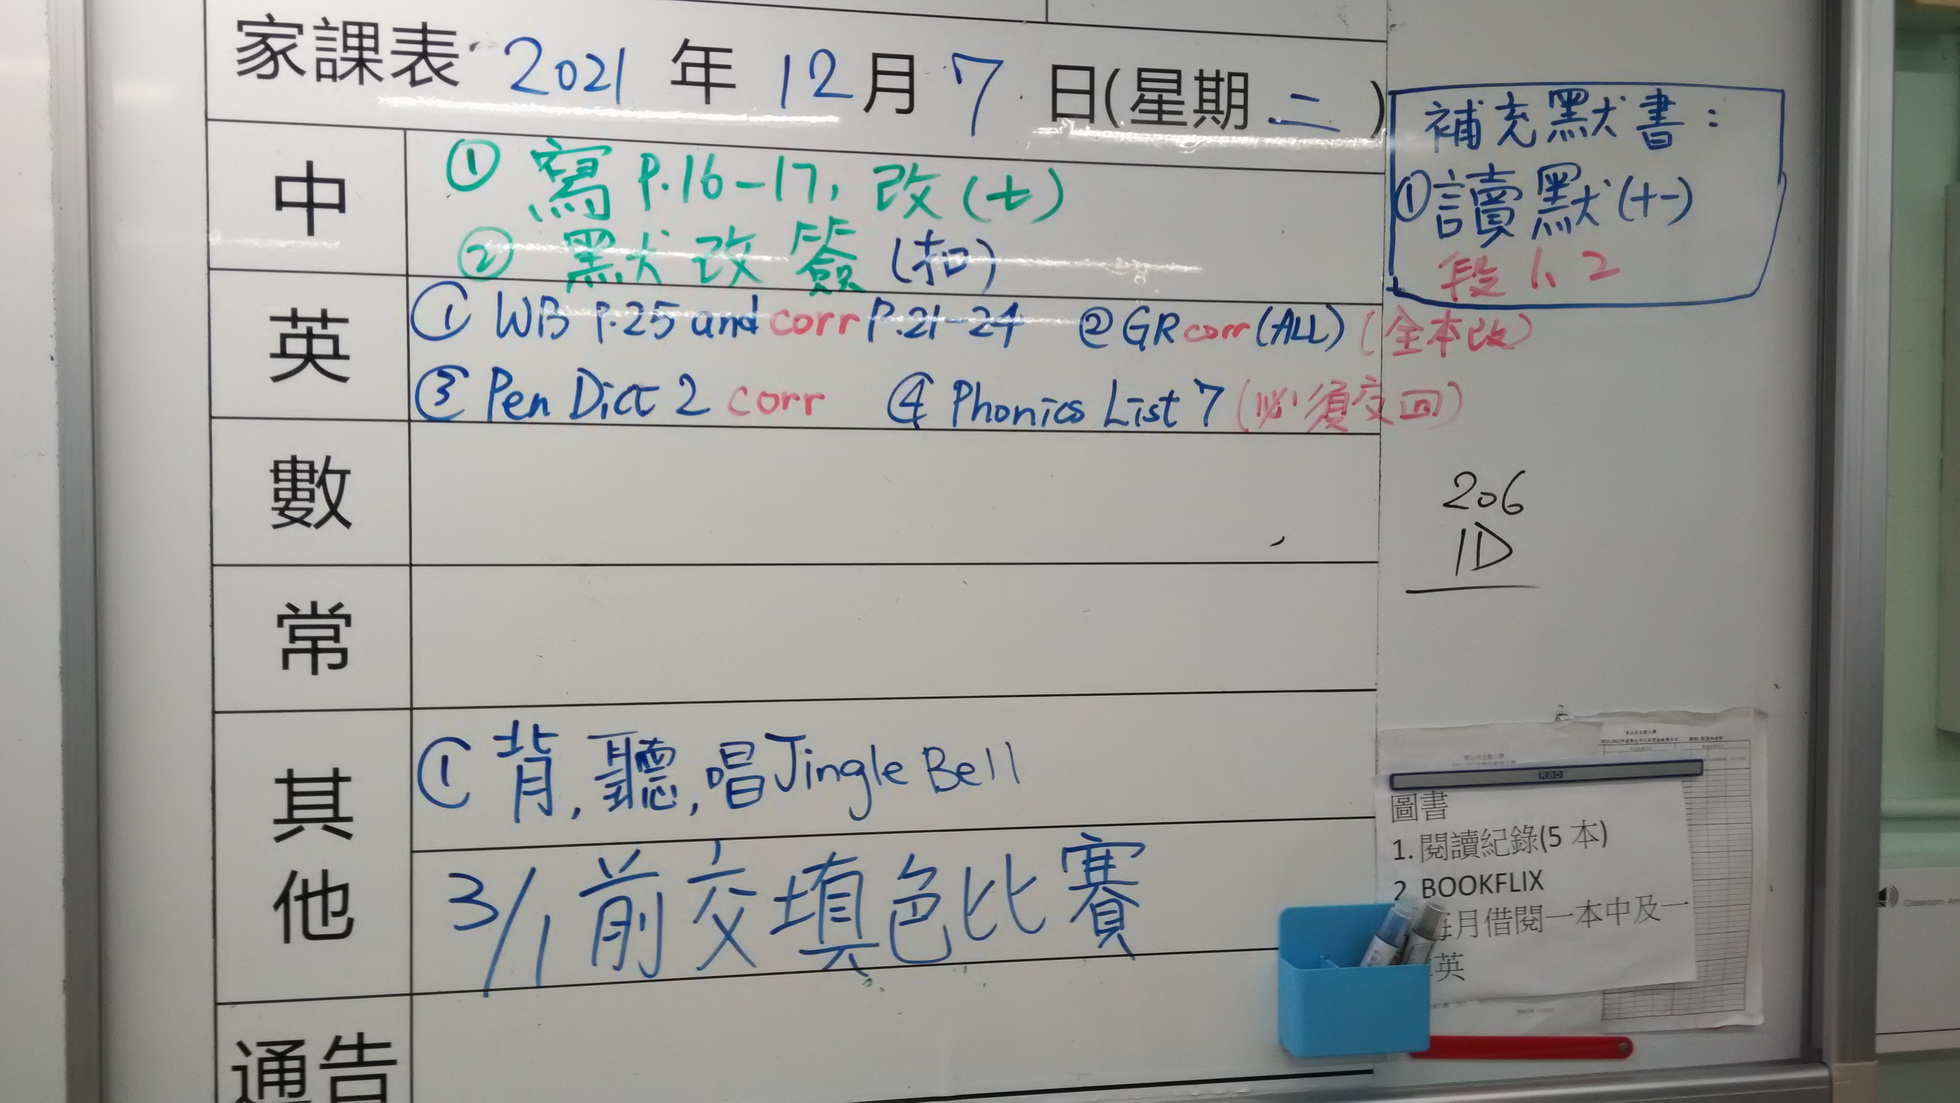 家課表 2021 年 12 月 7 日(星期 二 )
中
① 寫 P.16-17, 改(七)
② 默改簽 (扣)
英
① WB P.25 and corr P.21-24 ② GR corr (ALL) (全本改)
③ Pen Dict 2 corr ④ Phonics List 7 (必須交回)
數
常
其他
① 背, 聽, 唱 Jingle Bell
3/1 前交填色比賽
通告
補充默書:
① 讀默(十一)
段 1、2
206
1D
RBD
圖書
1. 閱讀紀錄(5 本)
2. BOOKFLIX
每月借閱一本中及一
英